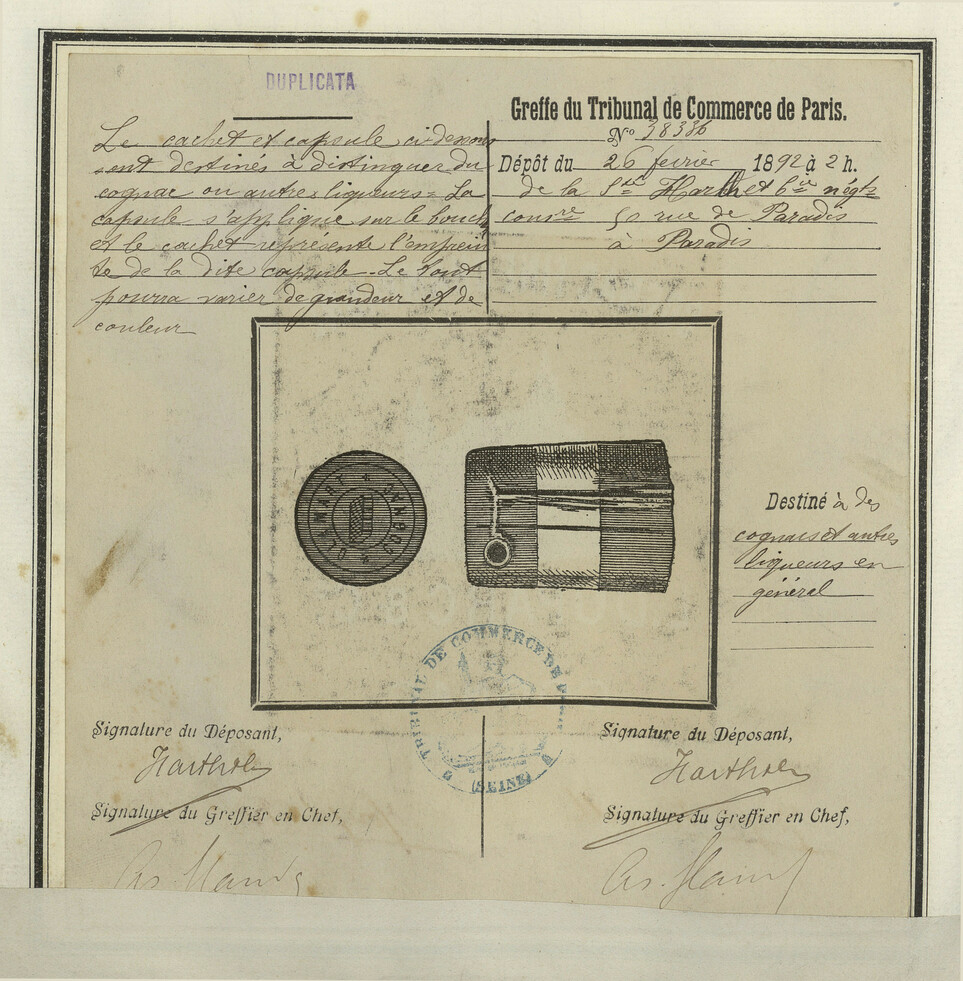 DUPLICATA
Le cachet et capsule ci-dessous
sont destinés à distinguer du
cognac ou autres liqueurs. La
capsule s'applique sur le bouch
et le cachet représente l'emprein
te de la dite capsule. Le tout
pourra varier de grandeur et de
couleur
Greffe du Tribunal de Commerce de Paris.
N° 38336
Dépôt du 26 fevrier 1892 à 2 h.
de la Sté et Cie négts
50 rue de Paradis
à Paradis
COGNAC
Destiné à des
cognacs et autres
liqueurs en
général
TRIBUNAL DE COMMERCE DE
(SEINE)
Signature du Déposant,
Signature du Greffier en Chef,
Signature du Déposant,
Signature du Greffier en Chef,